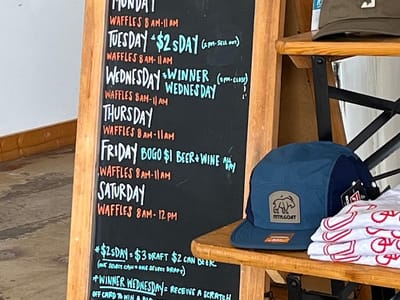 MONDAY
WAFFLES 8AM-11AM
TUESDAY *$2SDAY (2PM-SELL OUT)
WAFFLES 8AM-11AM
WEDNESDAY *WINNER WEDNESDAY (2PM-CLOSE)
WAFFLES 8AM-11AM
THURSDAY
WAFFLES 8AM-11AM
FRIDAY BOGO $1 BEER+WINE ALL DAY
WAFFLES 8AM-11AM
SATURDAY
WAFFLES 8AM-12PM
*$2SDAY=$3 DRAFT $2 CAN BEER
(ONE SELECT CAN + ONE SELECT DRAFT)
*WINNER WEDNESDAY= RECEIVE A SCRATCH
OFF CARD TO WIN A
MTN.GOAT